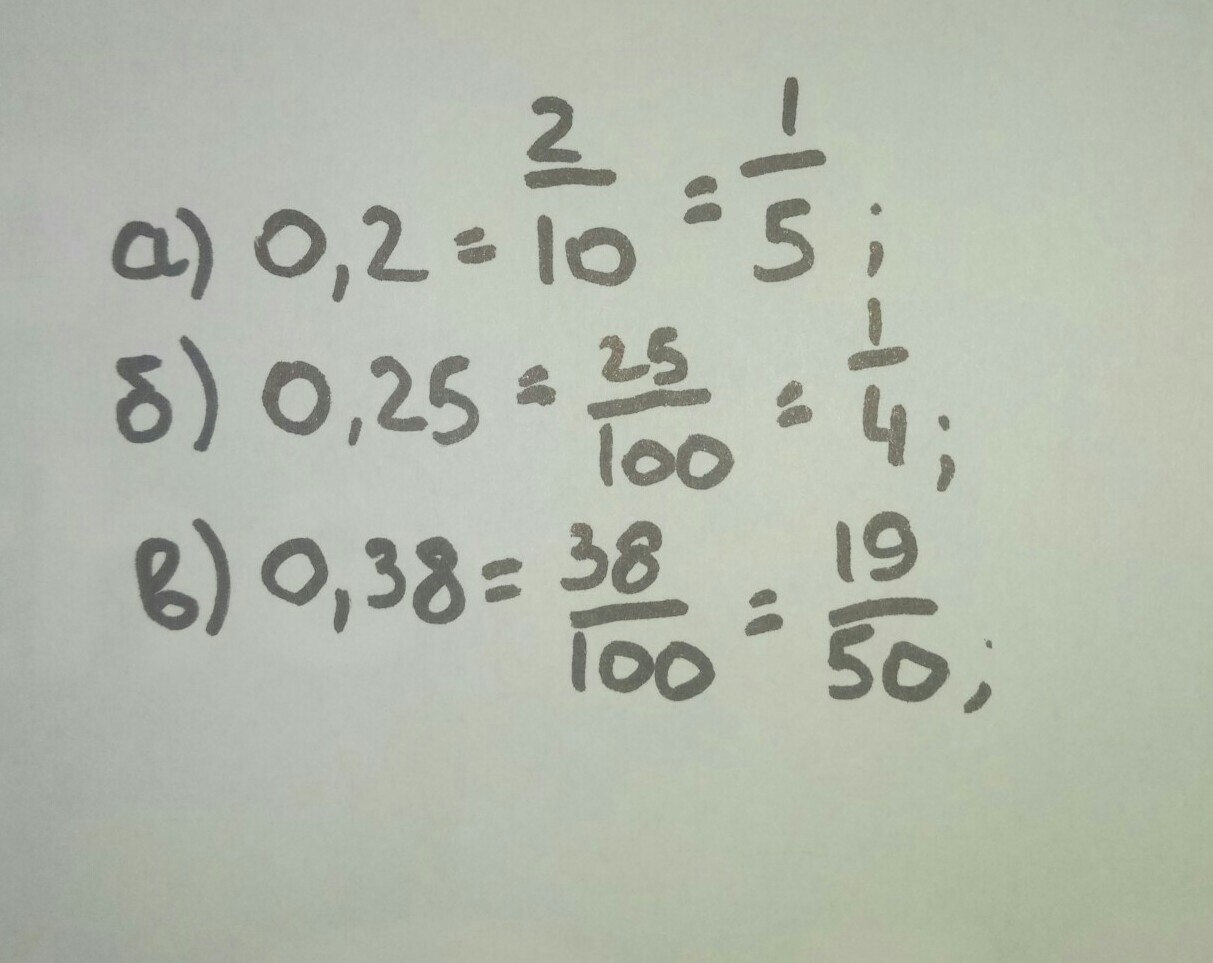 а) 0,2 = 2/10 = 1/5;
б) 0,25 = 25/100 = 1/4;
в) 0,38 = 38/100 = 19/50;